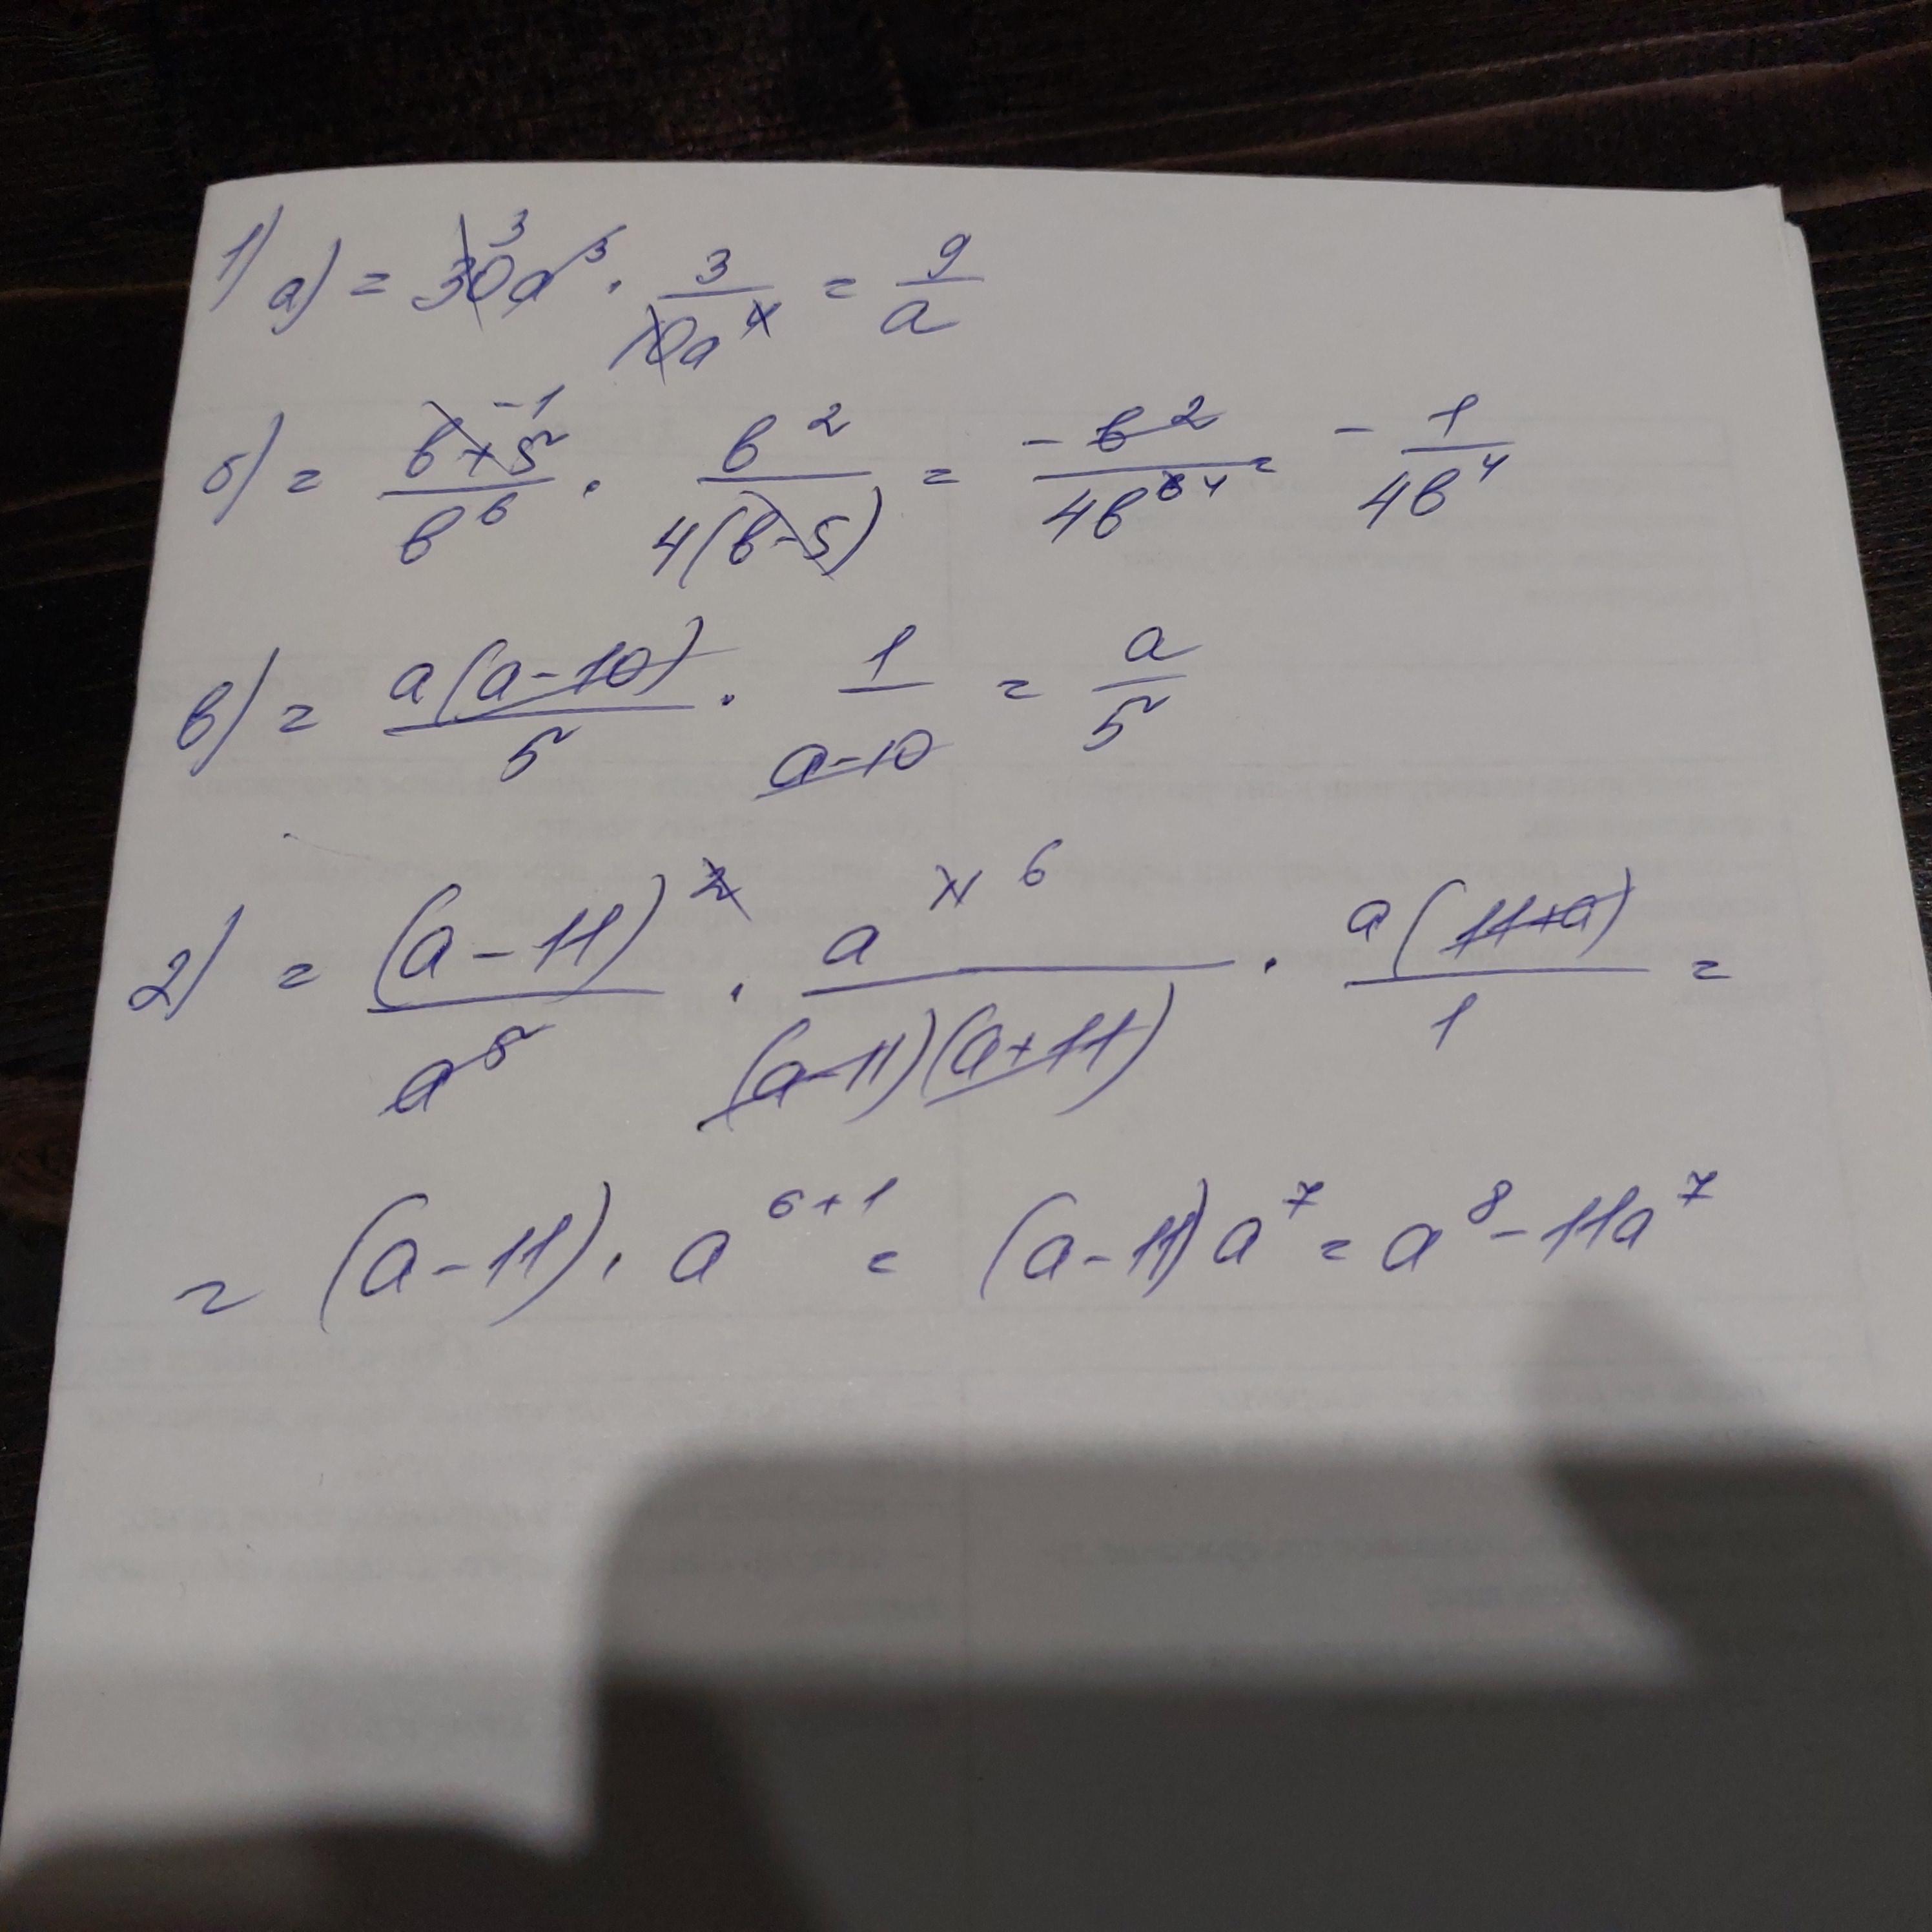 1) а) = 30a³ 3 · 3/10a⁴ = 9/a
б) = b+5 -1/b⁶ · b²/4(b-5) = -b²/4b⁶ 4 = -1/4b⁴
в) = a(a-10)/5 · 1/a-10 = a/5
2) = (a-11)²/a⁵ · a 6/(a-11)(a+11) · a(11+a)/1 =
= (a-11) · a⁶⁺¹ = (a-11)a⁷ = a⁸-11a⁷